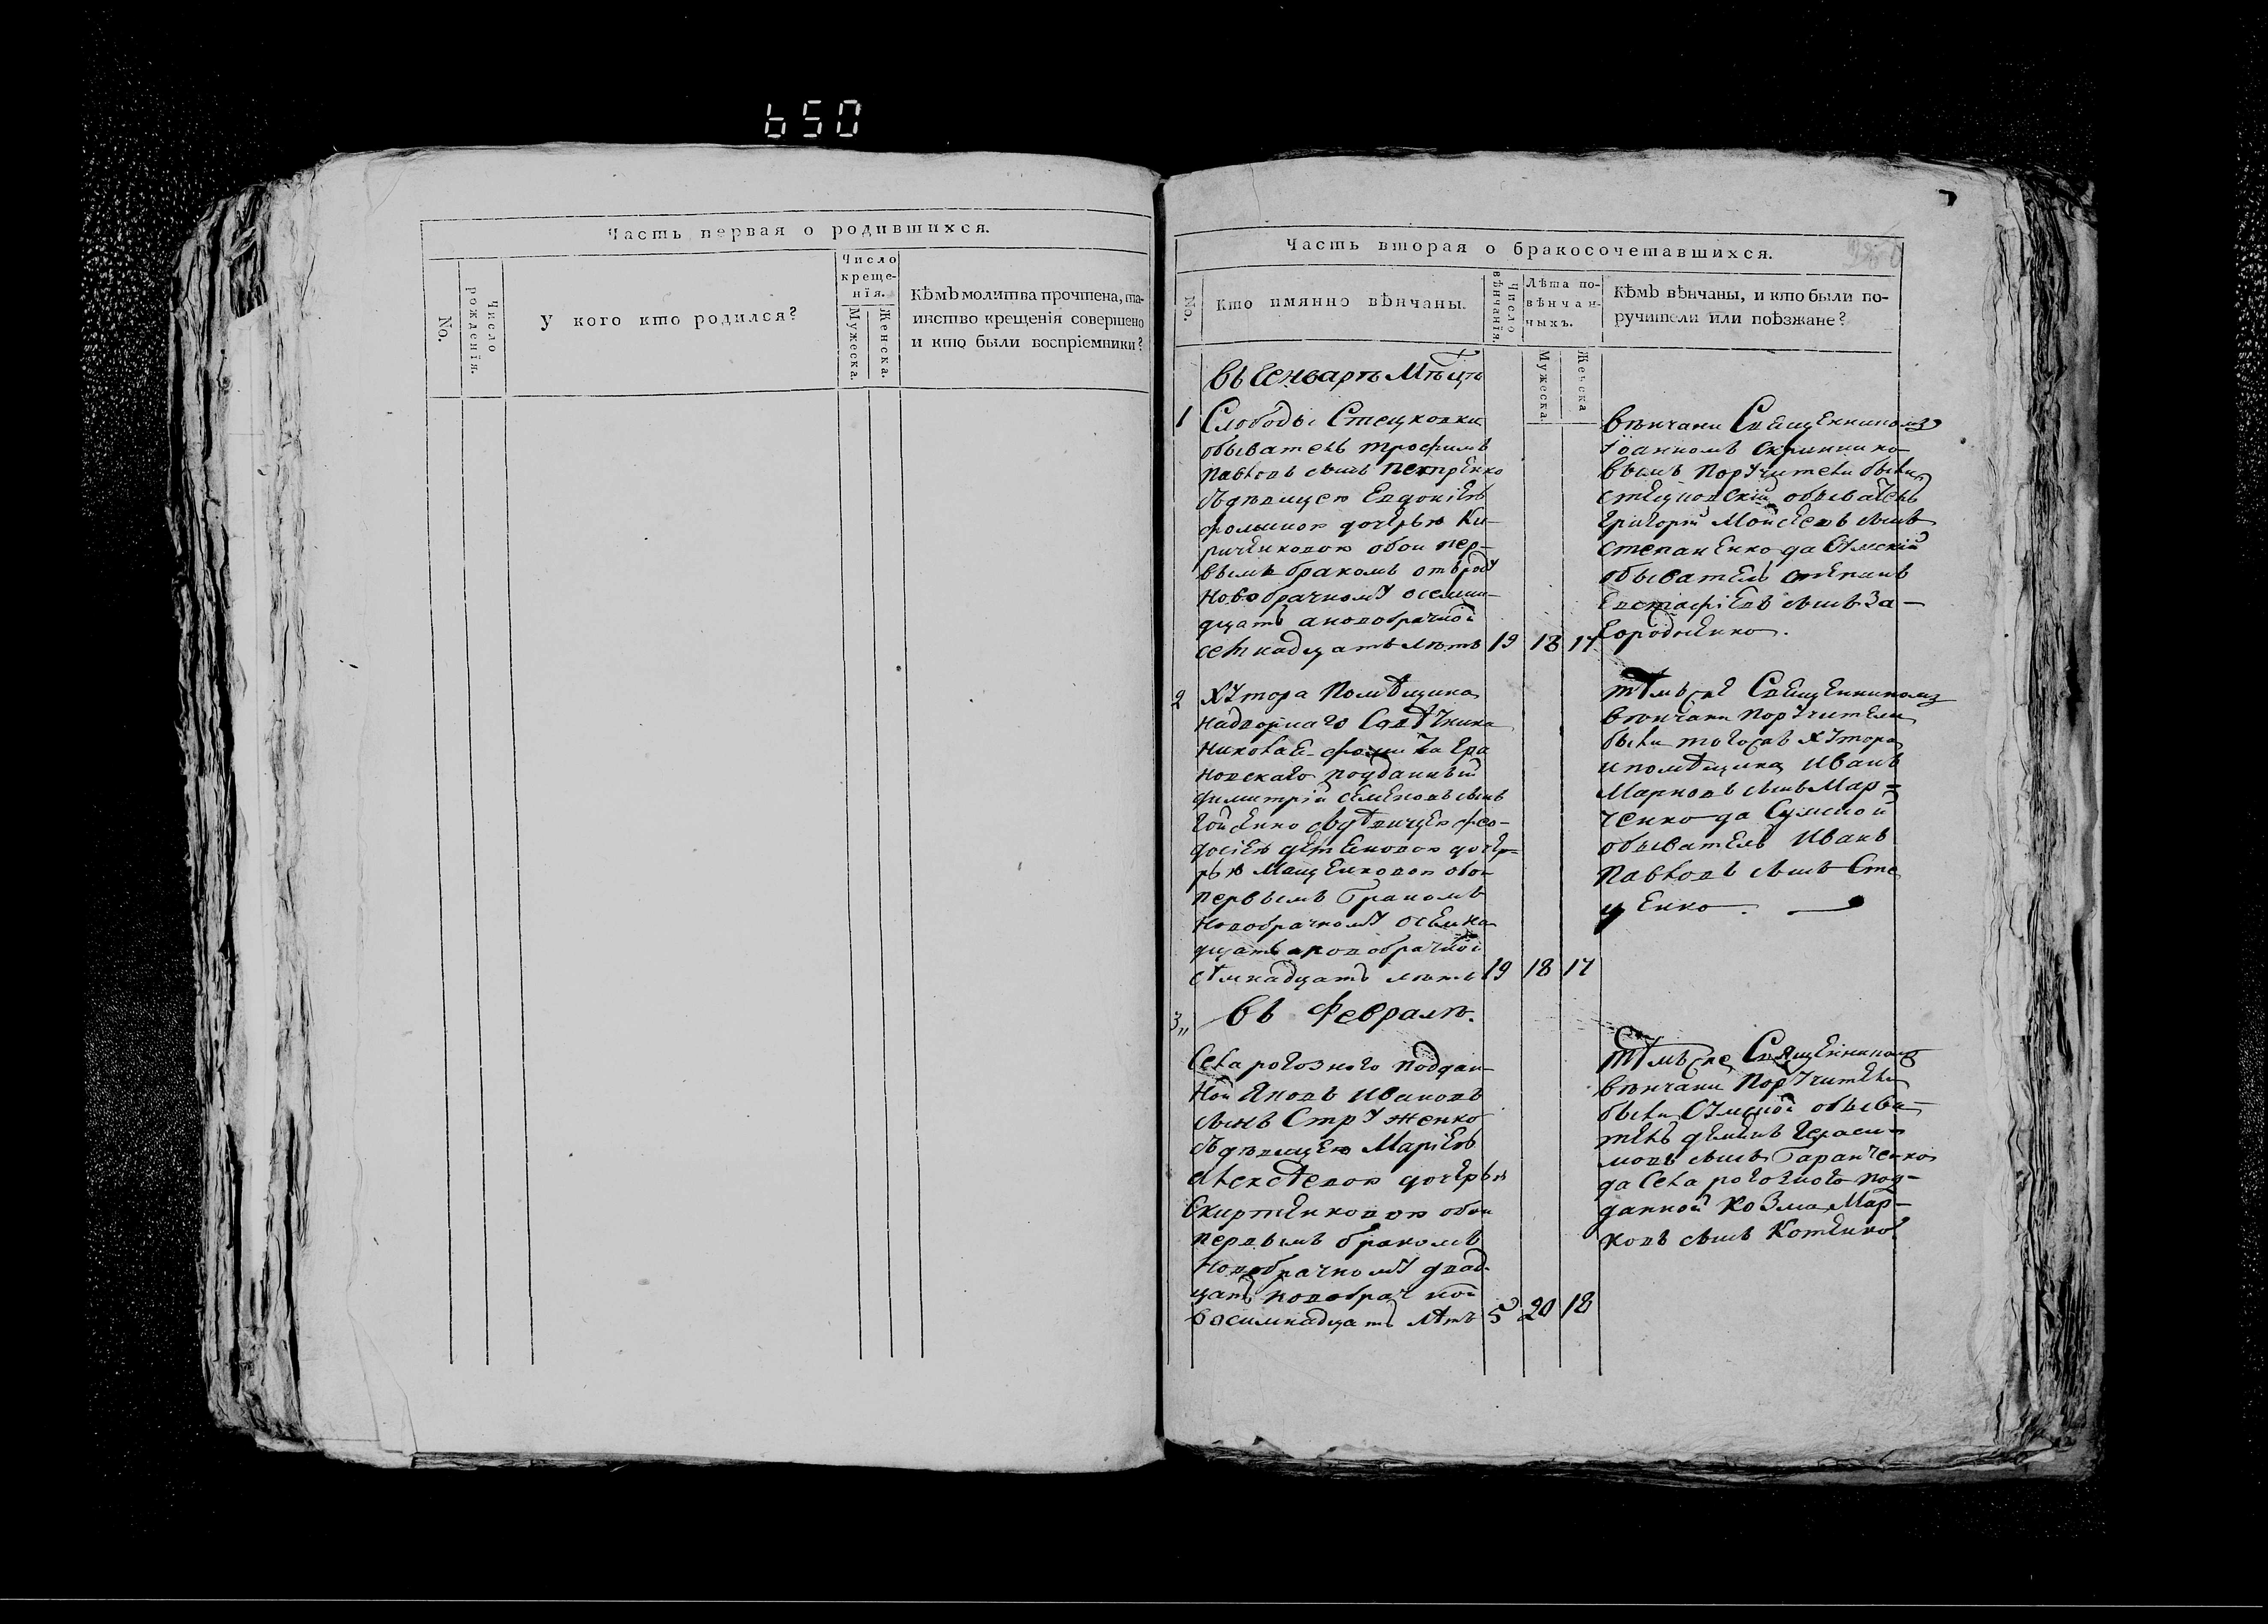 650
Часть первая о родившихся.
No.
Число рожденія.
У кого кто родился?
Число
креще-
нія.
Мужеска.
Женска.
Кѣмъ молитва прочтена, та-
инство крещенія совершено
и кто были воспріемники?
Часть вторая о бракосочетавшихся.
No.
Кто имянно вѣнчаны.
Число вѣнчанія.
Лѣта по-
вѣнчан-
ныхъ.
Мужеска.
Женска
Кѣмъ вѣнчаны, и кто были по-
ручители или поѣзжане?
Въ Генварѣ Мѣцѣ
1 Слободы Стецковки
обыватель Трофимъ
Павловъ сынъ
съ дѣвицею Евдокіею
дочерью Ки-
риченковою обои пер-
вымъ бракомъ отъ роду
новобрачному осемна-
дцать а новобрачной
семнадцать лѣтъ 19 18 17
вѣнчани Священникомъ
Іоанномъ
вымъ Поручители были
стецковскій обыватель
Григорій Мойсеевъ сынъ
Степаненко да Сумскій
обыватель Степанъ
Евстафіевъ сынъ За-
городненко.
2 Хутора Помѣщика
надворнаго Совѣтника
Николая
новскаго подданный
Димитрій Семеновъ сынъ
съ дѣвицею Фео-
досіею дочер-
рью Маценковою обои
первымъ бракомъ
новобрачному осемна
дцать а новобрачной
семнадцать лѣтъ 19 18 17
тѣмъ же Священникомъ
вѣнчани Поручители
были того жъ хутора
и помѣщика Иванъ
Марковъ сынъ Мар-
ченко да Сумской
обыватель Иванъ
Павловъ сынъ Сте
ценко.
3 въ Февралѣ.
Села рогозного поддан
ной Яковъ Ивановъ
сынъ Струженко
съ дѣвицею Маріею
Алексѣевою дочерью
Скиртенковою обои
первымъ бракомъ
новобрачному двад
цать новобрачной
восимнадцать лѣтъ 5 20 18
тѣмъ же Священникомъ
вѣнчани Поручители
были Сумской обыва-
тель Демянъ Гераси-
мовъ сынъ Гаранченко
да Села рогозного под-
данной Козма Мар-
ковъ сынъ Котенко